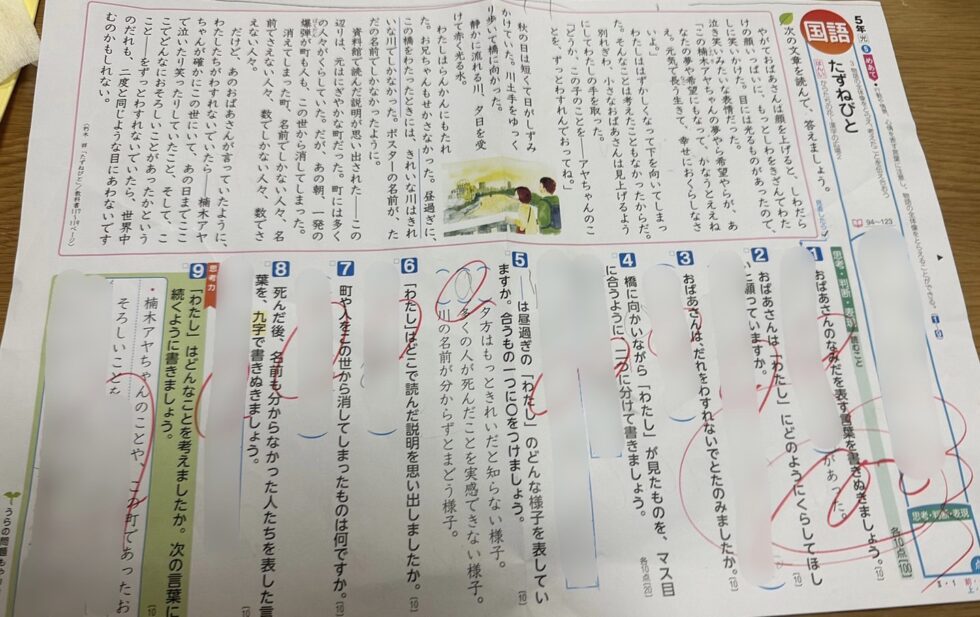 5年
光
9
国語
たずねびと
めあて
94～123
次の文章を読んで、答えましょう。
やがておばあさんは顔を上げると、しわだら
けの顔いっぱいに、もっとしわをきざんでわた
しに笑いかけた。目には光るものがあったので、
泣き笑いみたいな表情だった。
「この楠木アヤちゃんの夢やら希望やらが、あ
なたの夢や希望にもなって、かなうとええねえ。
元気で長う生きて、幸せにおくらしなさ
いよ。」
わたしははずかしくなって下を向いてしまっ
た。そんなことは考えたこともなかったからだ。
別れぎわ、小さなおばあさんは見上げるよう
にしてわたしの手を取った。
「どうか、この子のことを――アヤちゃんのこ
とを、ずっとわすれんでおってね。」
秋の日は短くて日がしずみ
かけていた。川土手をゆっく
り歩いて橋に向かった。
静かに流れる川、夕日を受
けて赤く光る水。
わたしはらんかんにもたれ
た。お兄ちゃんもせかさなかった。昼過ぎに、
この橋をわたったときには、きれいな川はきれ
いな川でしかなかった。ポスターの名前が、た
だの名前でしかなかったように。
資料館で読んだ説明が思い出された――この
辺りは、元はにぎやかな町だった。町には多く
の人々がくらしていた。だが、あの朝、一発の
爆弾が町も人も、この世から消してしまった。
消えてしまった町、名前でしかない人々、名
前でさえない人々、数でしかない人々、数でさ
えない人々。
だけど、あのおばあさんが言っていたように、
わたしたちがわすれないでいたら――楠木アヤ
ちゃんが確かにこの世にいて、あの日までここ
で泣いたり笑ったりしていたこと、そして、こ
こでどんなにおそろしいことがあったかという
こと――をずっとわすれないでいたら、世界中
のだれも、二度と同じような目にあわないです
むのかもしれない。
思考・判断・表現
読むこと
各10点【100】
1 おばあさんのなみだを表す言葉を書きぬきましょう。
があった。
2 おばあさんは「わたし」にどのようにくらしてほし
いと願っていますか。
3 おばあさんは、だれをわすれないでとたのみましたか。
4 橋に向かいながら「わたし」が見たものを、マス目
に合うように、二つに分けて書きましょう。
各10点【20】
5 ――は昼過ぎの「わたし」のどんな様子を表してい
ますか。合うもの一つに○をつけましょう。
夕方はもっときれいだと知らない様子。
多くの人が死んだことを実感できない様子。
川の名前が分からずとまどう様子。
6 「わたし」はどこで読んだ説明を思い出しましたか。
7 町や人をこの世から消してしまったものは何ですか。
8 死んだ後、名前も分からなかった人たちを表した言
葉を、九字で書きぬきましょう。
思考力
9 「わたし」はどんなことを考えましたか。次の言葉に
続くように書きましょう。
・楠木アヤちゃんのことや、この町であったお
そろしいことを
思考・判断・表現